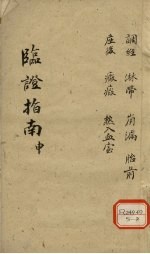 調經 淋帶 崩漏 胎前
産後 癥瘕 熱入血室
臨證指南中